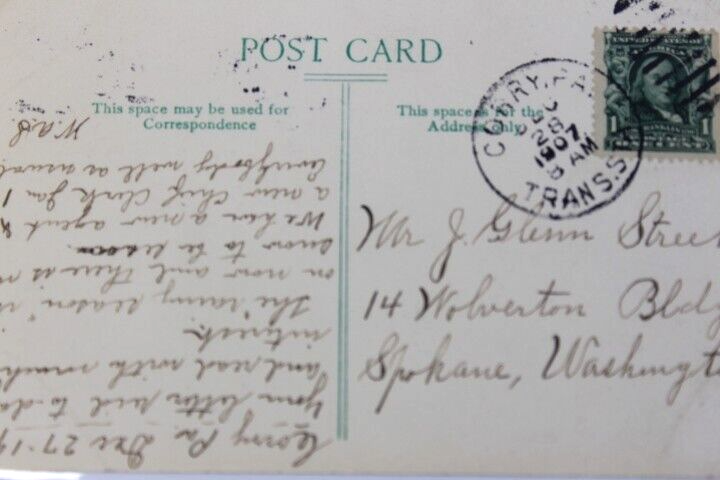 POST CARD
This space may be used for
Correspondence
This space is for the
Address only.
CORRY, PA.
DEC
28
1907
8 AM
TRANS.S
UNITED STATES OF
1 FRANKLIN 1
CENT
Mr J. Glenn Stree
14 Wolverton Bldg
Spokane, Washingt
Corry Pa Dec 27-19
Your letter rec'd to-da
and read with much
interest.
The "rainy season" is
on now and there is n
snow to be seen
We have a new agent &
a new chief clerk Jan 1
Everybody well as usual